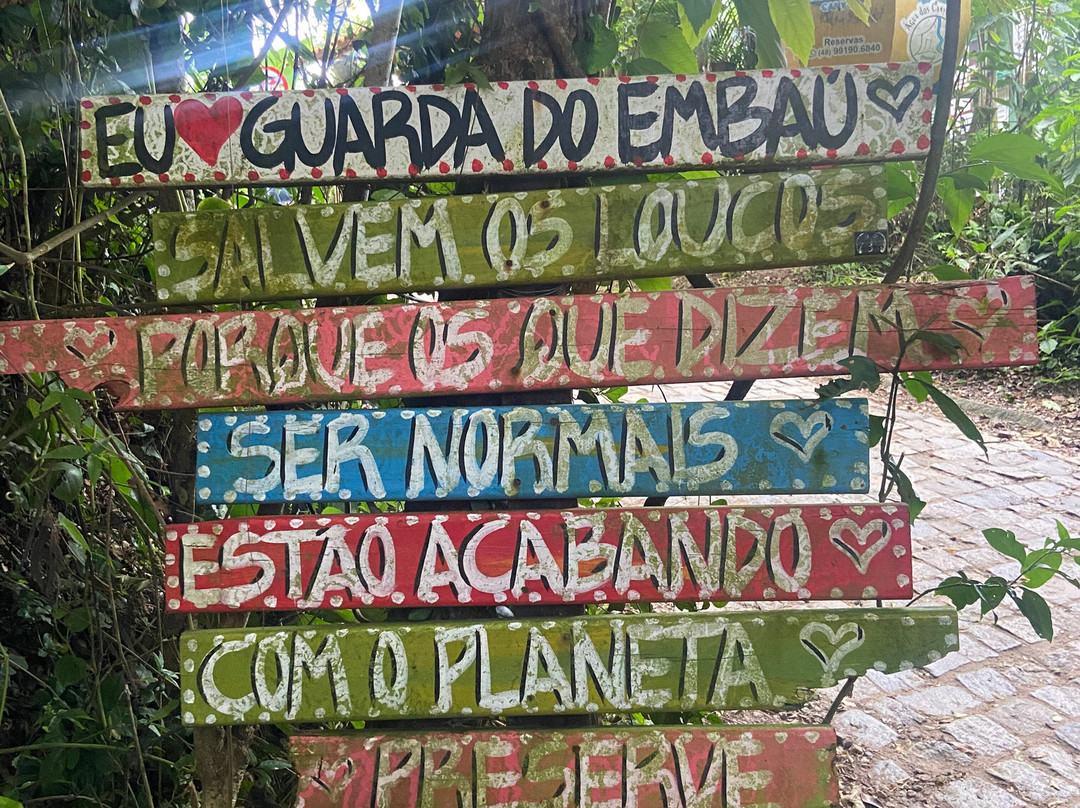 Reservas
(48) 99190.6840
EU ❤ GUARDA DO EMBAÚ
SALVEM OS LOUCOS
PORQUE OS QUE DIZEM
SER NORMAIS
ESTÃO ACABANDO
COM O PLANETA
PRESERVE